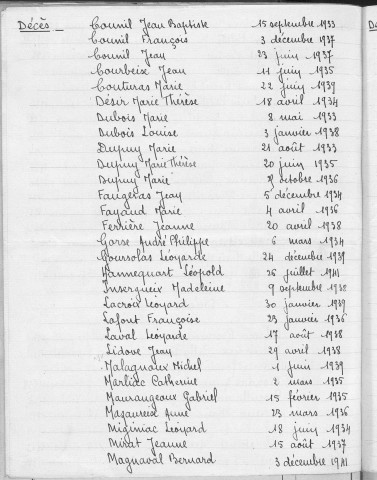 Décès - Counil Jean Baptiste 15 septembre 1933
Counil François 3 décembre 1937
Counil Jean 23 juin 1937
Courbeix Jean 11 juin 1935
Couturas Marie 22 juin 1939
Désir Marie Thérèse 18 avril 1934
Dubois Marie 8 mai 1933
Dubois Louise 3 janvier 1938
Dupuy Marie 21 août 1933
Dupuy Marie Thérèse 20 juin 1935
Dupuy Marie octobre 1936
Faugeras Jean 5 décembre 1934
Fayaud Marie 4 avril 1936
Ferrière Jeanne 20 avril 1938
Gorse André Philippe 6 mars 1934
Goursolas Léonarde 24 décembre 1939
Hannequart Léopold 26 juillet 1941
Insergueix Madeleine 9 septembre 1938
Lacroix Léonard 30 janvier 1939
Lafont Françoise 23 janvier 1936
Laval Léonarde 17 août 1938
Lidove Jean 29 avril 1938
Malagnoux Michel 1 juin 1939
Marliac Catherine 2 mars 1935
Maurangeoux Gabriel 15 février 1935
Mazaureix Anne 23 mars 1936
Miginiac Léonard 18 juin 1934
Mirat Jeanne 15 août 1937
Magnaval Bernard 3 décembre 1941